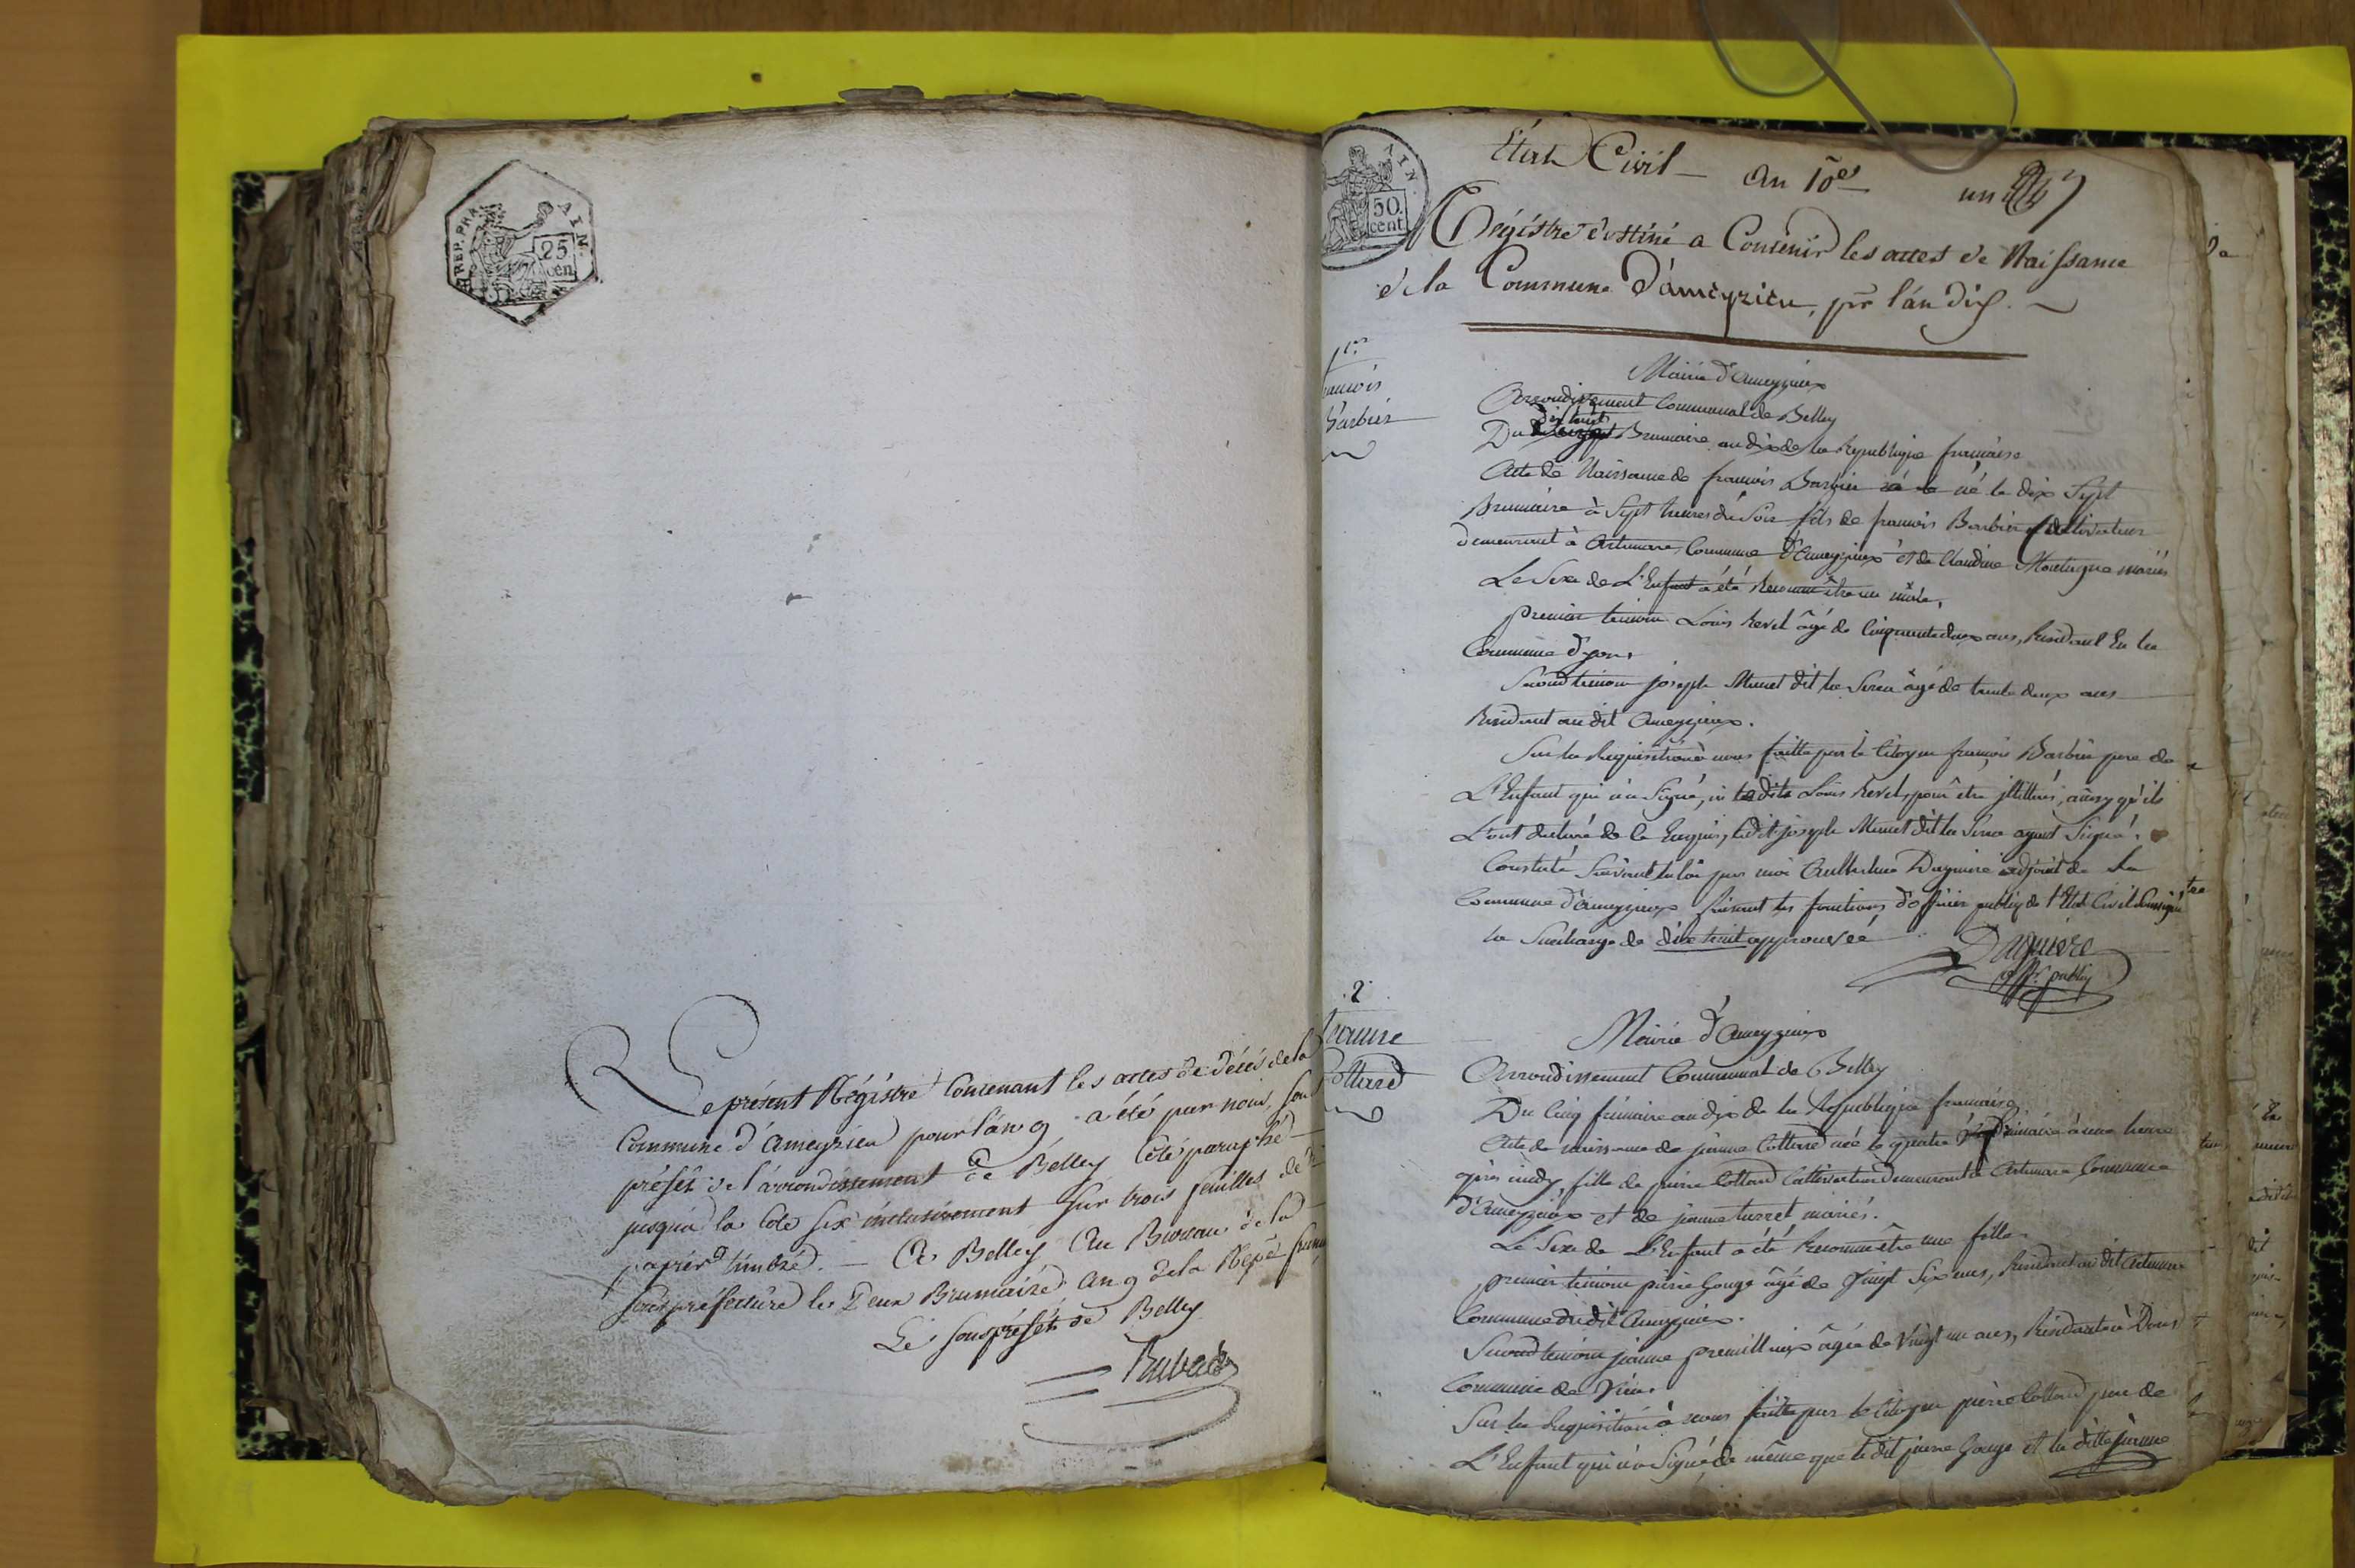 REP. FRA
AIN.
25
cen
Le présent Régistre Contenant les actes de décés de la
Commune d'ameyzieu pour l'an 9 a été par nous, sous
préfét de l'arrondissement de Belley Coté paraphé
jusqu'a la Cote six inclusivement sur trois feuilles de
papier timbré. — A Belley Au Bureau de la
souspréfecture le Deux Brumaire an 9 de la Rép
Le souspréfét de Belley
AIN.
50.
cent
Etat Civil — An 10e un
Régistre destiné a Contenir les actes de Naissance
de la Commune D'ameyzieu, pr l'an dix. ~
1er
Barbier
Mairie d'Ameyzieux
Arrondissement Communal de Belley
dix huit
Du Brumaire an dix de la Republique francaise
Acte de Naissance de francois Barbier né le dix Sept
Brumaire à Sept heures du Soir fils de francois Barbier Cultivateur
demeurant à Artemare Commune d'Ameyzieux et de Claudine mariés
Le Sexe de L'Enfant a été Reconnu être un mâle,
premier temoin Louis Revel âgé de Cinquante deux ans, Residant En la
Commune d'yon
Second temoin joseph Munet dit la âgé de trente deux ans
Residant au dit Ameyzieux.
Sur la Requisition à nous faitte par le Citoyen francois Barbier pere de
L'Enfant qui n'a Signé, ni le dit Louis Revel, pour etre illittéré, ainsy qu'ils
L'ont declaré de le Enquis, ledit joseph Munet dit la ayant Signé.
Constaté Suivant la loi par moi Anthelme Duguiere adjoint de la
Commune d'Ameyzieux faisant les fonctions d'officier public de l'Etat Civil Soussigné
la Surcharge de dix huit approuvéé
Duguiere
offr. public
2
Jeanne
Cottard
Mairie d'Ameyzieux
Arrondissement Communal de Belley
Du Cinq frimaire an dix de la Republique francaise
Acte de naissance de jeanne Cottard née le quatre frimaire à une heure
après midy fille de pierre Cottard Cultivateur demeurant à Artemare Commune
d'Ameyzieux et de jeanne turret mariés.
Le Sexe de L'Enfant a été Reconnu être une fille
premier temoin pierre Gouge âgé de Vingt Six ans, Residant au dit Artemare
Commune du dit Ameyzieux.
Second temoin jeanne premillieux âgée de Vingt un ans, Residante à Don
Commune de Vieu
Sur la Requisition à nous faitte par le Citoyen pierre Cottard pere de
L'Enfant qui n'a Signé de même que le dit pierre Gouge et la ditte jeanne